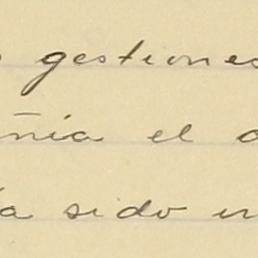 gestiones
ñia el
sido